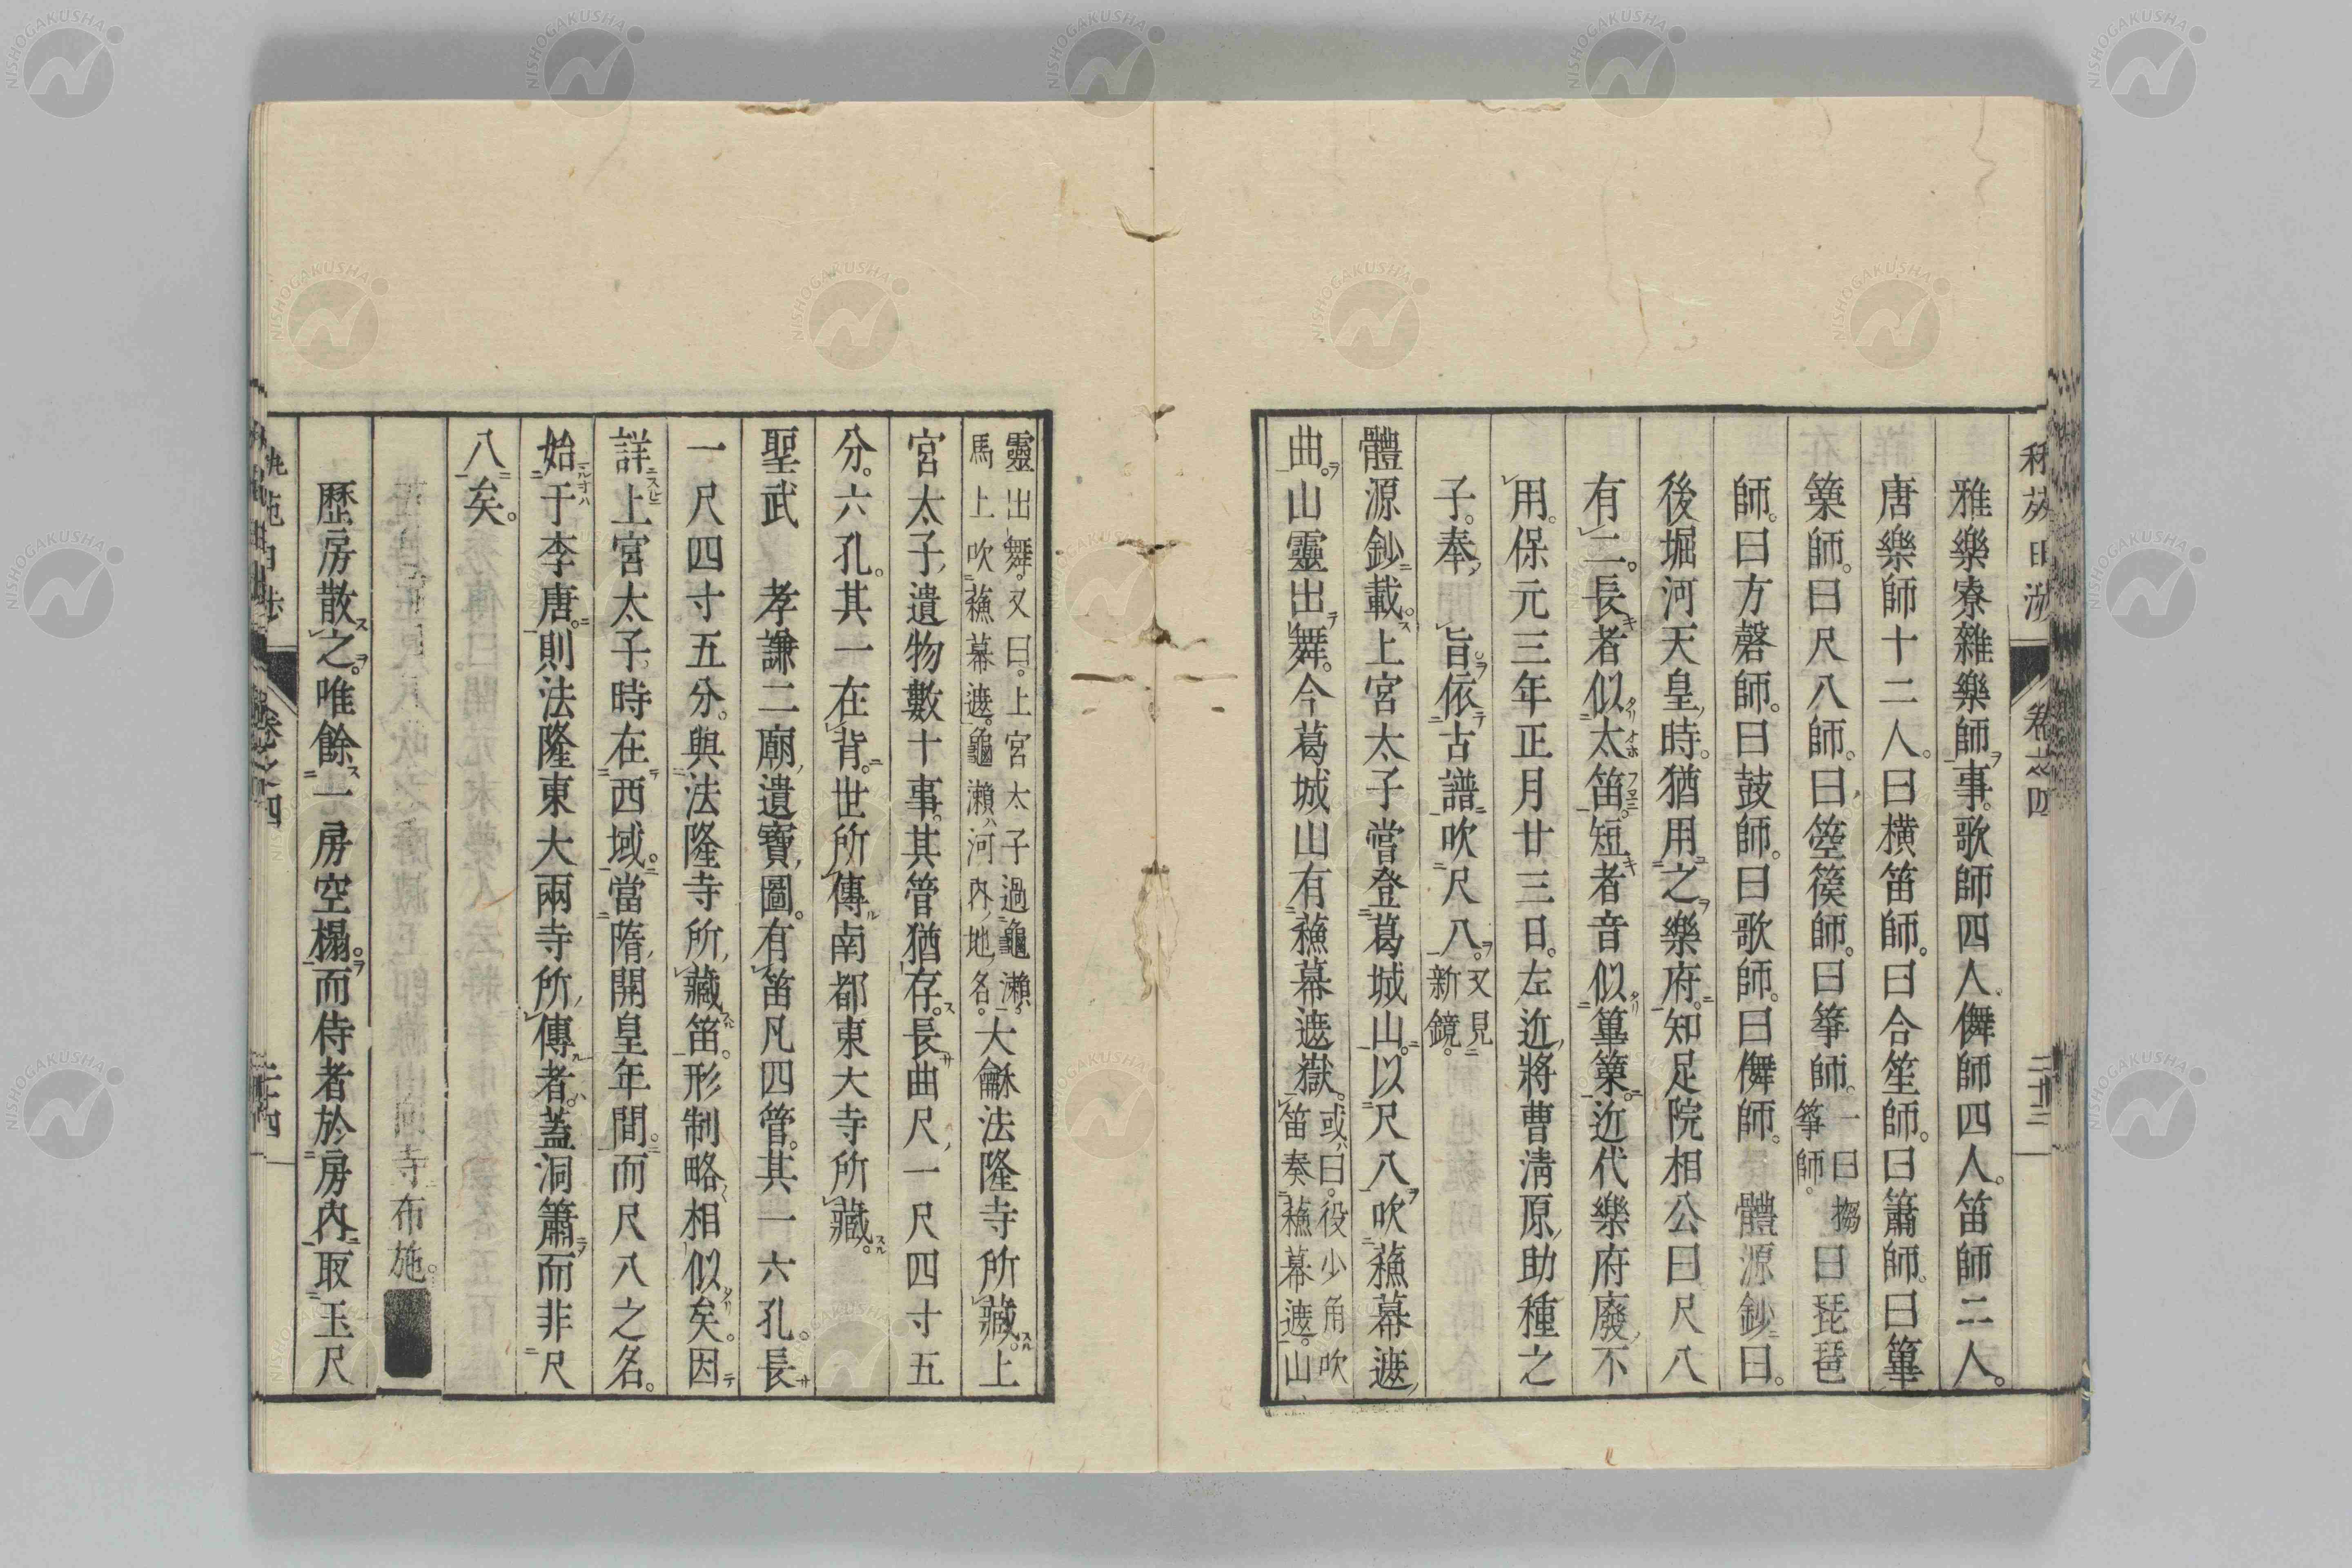 雅樂寮雜樂師ヲ事。歌師四人。儛師四人。笛師二人。
唐樂師十二人。曰横笛師。曰合笙師。曰簫師。曰篳
篥師。曰尺八師。曰箜篌師。曰箏師。一曰搊箏師。曰琵琶
師。曰方磬師。曰鼓師。曰歌師。曰儛師。 體源鈔曰。
後堀河天皇時。猶用之樂府。知足院相公曰尺八
有二。長者似太笛。短者音似篳篥。近代樂府廢不
用。保元三年正月廿三日。左近將曹淸原助種之
子。奉旨依古譜吹尺八。又見新鏡。
體源鈔載。上宮太子嘗登葛城山。以尺八吹蘓幕遮
曲。山靈出舞。今葛城山有蘓幕遮嶽。或曰。役少角吹笛奏蘓幕遮。山
靈出舞。又曰。上宮太子過龜瀨馬上吹蘓幕遮。龜瀨河內地名。大龢法隆寺所藏。上
宮太子遺物數十事。其管猶存。長曲尺一尺四寸五
分。六孔。其一在背。世所傳南都東大寺所藏。
聖武 孝謙二廟遺寶圖。有笛凡四管。其一六孔。長
一尺四寸五分。與法隆寺所藏笛。形制略相似矣。因
詳上宮太子時在西域。當隋開皇年間。而尺八之名。
始于李唐。則法隆東大兩寺所傳者。蓋洞簫而非尺
八矣。
寺布施。
歷房散之。唯餘一房空榻。而侍者於房內取玉尺
卷之四